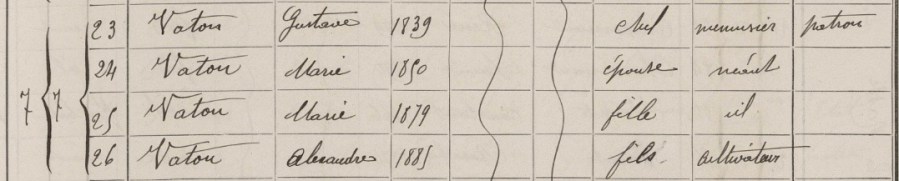 23 Vaton Gustave 1839 chef menuisier patron
24 Vaton Marie 1850 épouse néant
7 7 25 Vaton Marie 1879 fille id.
26 Vaton Alexandre 1885 fils cultivateur